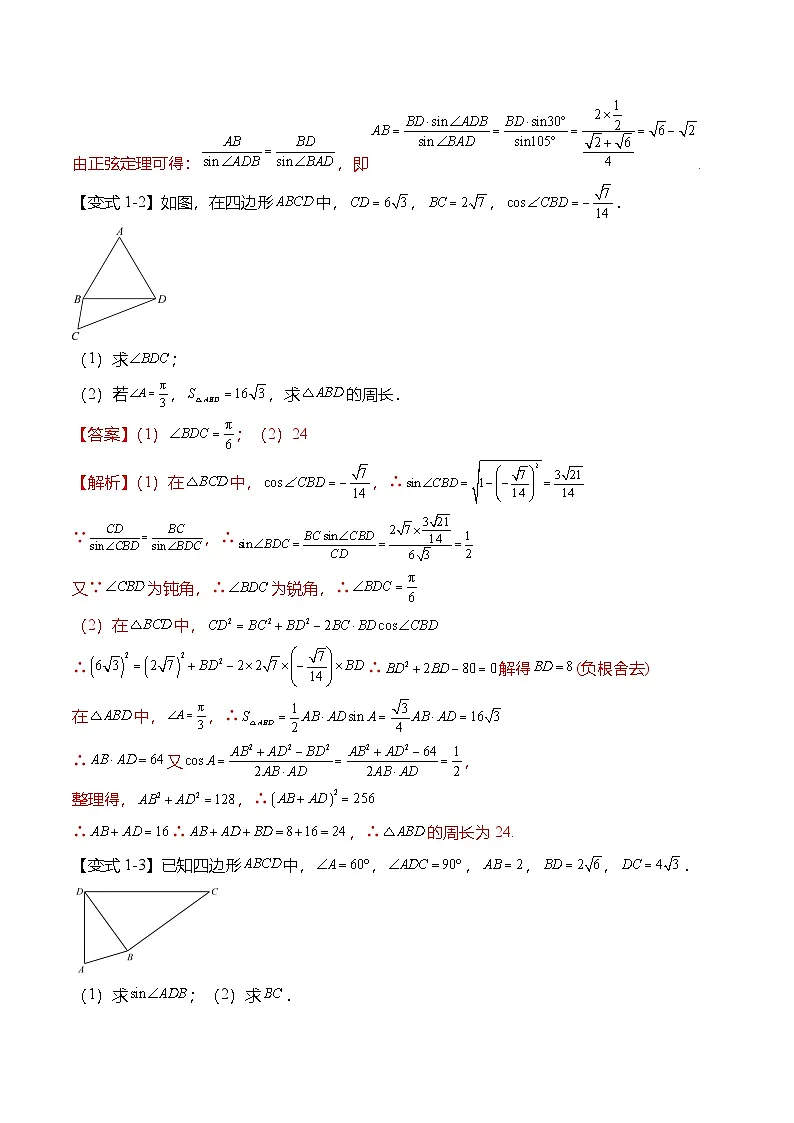 由正弦定理可得：AB/sin∠ADB = BD/sin∠BAD，即 AB = BD·sin∠ADB/sin∠BAD = BD·sin30°/sin105° = (2×1/2)/((√2+√6)/4) = √6−√2．
【变式 1-2】如图，在四边形ABCD中，CD=6√3，BC=2√7，cos∠CBD=−√7/14．
A
B D
C
（1）求∠BDC；
（2）若∠A=π/3，S△ABD=16√3，求△ABD的周长．
【答案】（1）∠BDC=π/6；（2）24
【解析】（1）在△BCD中，cos∠CBD=−√7/14，∴sin∠CBD=√(1−(−√7/14)²)=3√21/14
∵CD/sin∠CBD=BC/sin∠BDC，∴sin∠BDC=BC sin∠CBD/CD=(2√7×3√21/14)/(6√3)=1/2
又∵∠CBD为钝角，∴∠BDC为锐角，∴∠BDC=π/6
（2）在△BCD中，CD²=BC²+BD²−2BC·BDcos∠CBD
∴(6√3)²=(2√7)²+BD²−2×2√7×(−√7/14)×BD∴BD²+2BD−80=0解得BD=8(负根舍去)
在△ABD中，∠A=π/3，∴S△ABD=1/2 AB·ADsin A=√3/4 AB·AD=16√3
∴AB·AD=64又cos A=(AB²+AD²−BD²)/(2AB·AD)=(AB²+AD²−64)/(2AB·AD)=1/2，
整理得，AB²+AD²=128，∴(AB+AD)²=256
∴AB+AD=16∴AB+AD+BD=8+16=24，∴△ABD的周长为24.
【变式 1-3】已知四边形ABCD中，∠A=60°，∠ADC=90°，AB=2，BD=2√6，DC=4√3．
D C
B
A
（1）求sin∠ADB；（2）求BC．